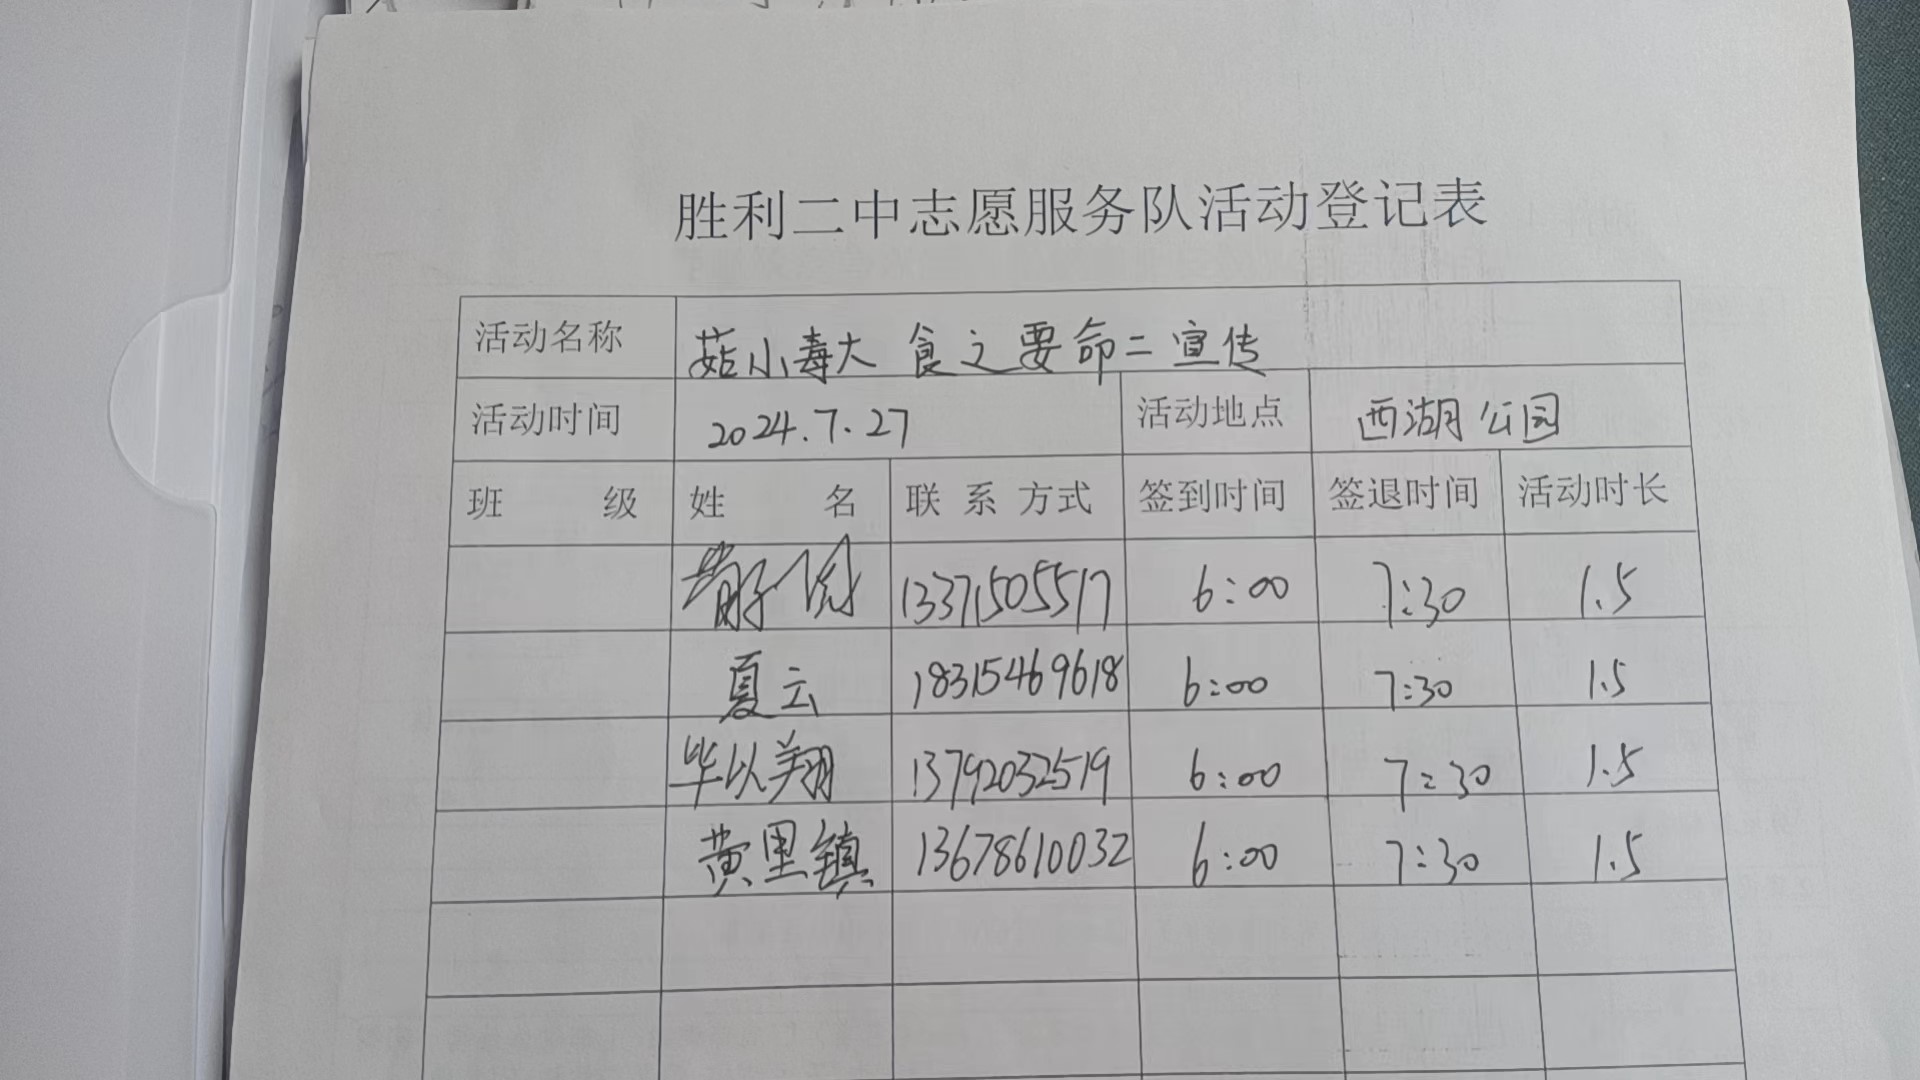 胜利二中志愿服务队活动登记表
活动名称 菇小毒大 食之要命二宣传
活动时间 2024.7.27 活动地点 西湖公园
班 级 姓 名 联系方式 签到时间 签退时间 活动时长
13371505517 6:00 7:30 1.5
夏云 18315469618 6:00 7:30 1.5
毕以翔 13792032519 6:00 7:30 1.5
黄里镇 13678610032 6:00 7:30 1.5